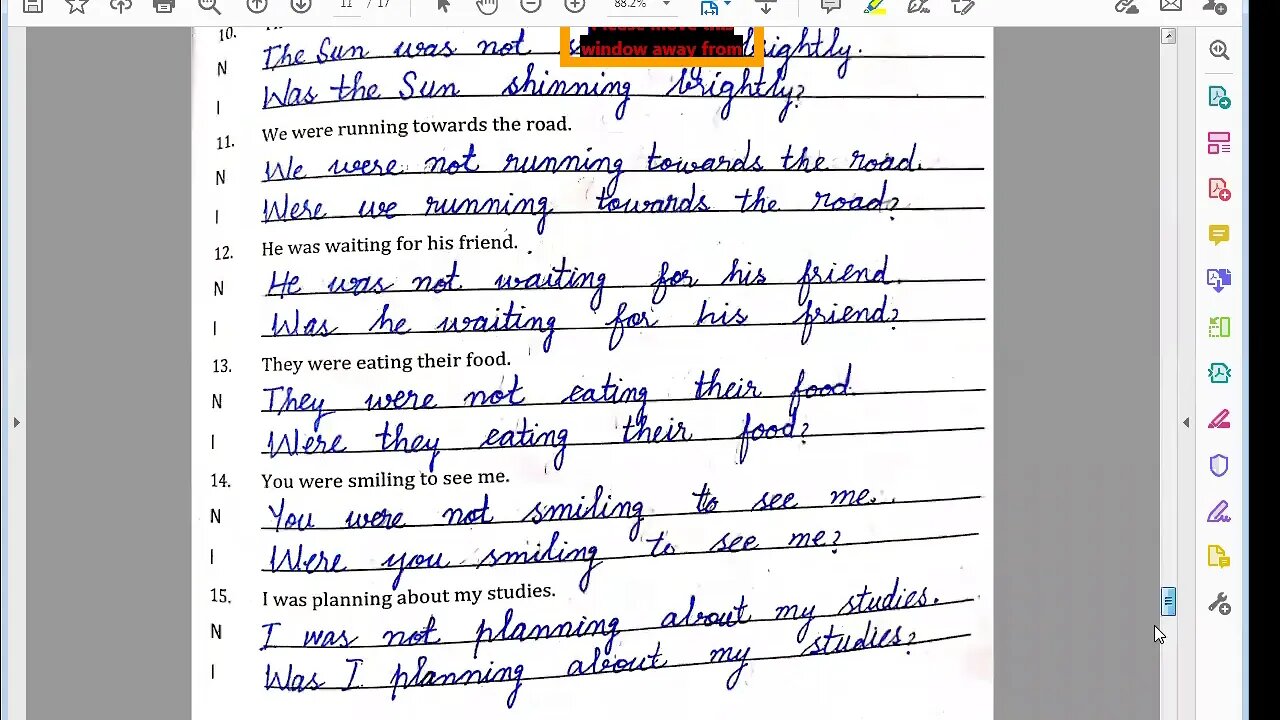 11 / 17 88.2%
10.
Please move this
window away from
N The Sun was not brightly.
I Was the Sun shinning brightly?
11. We were running towards the road.
N We were not running towards the road.
I Were we running towards the road?
12. He was waiting for his friend.
N He was not waiting for his friend.
I Was he waiting for his friend?
13. They were eating their food.
N They were not eating their food.
I Were they eating their food?
14. You were smiling to see me.
N You were not smiling to see me.
I Were you smiling to see me?
15. I was planning about my studies.
N I was not planning about my studies.
I Was I planning about my studies?